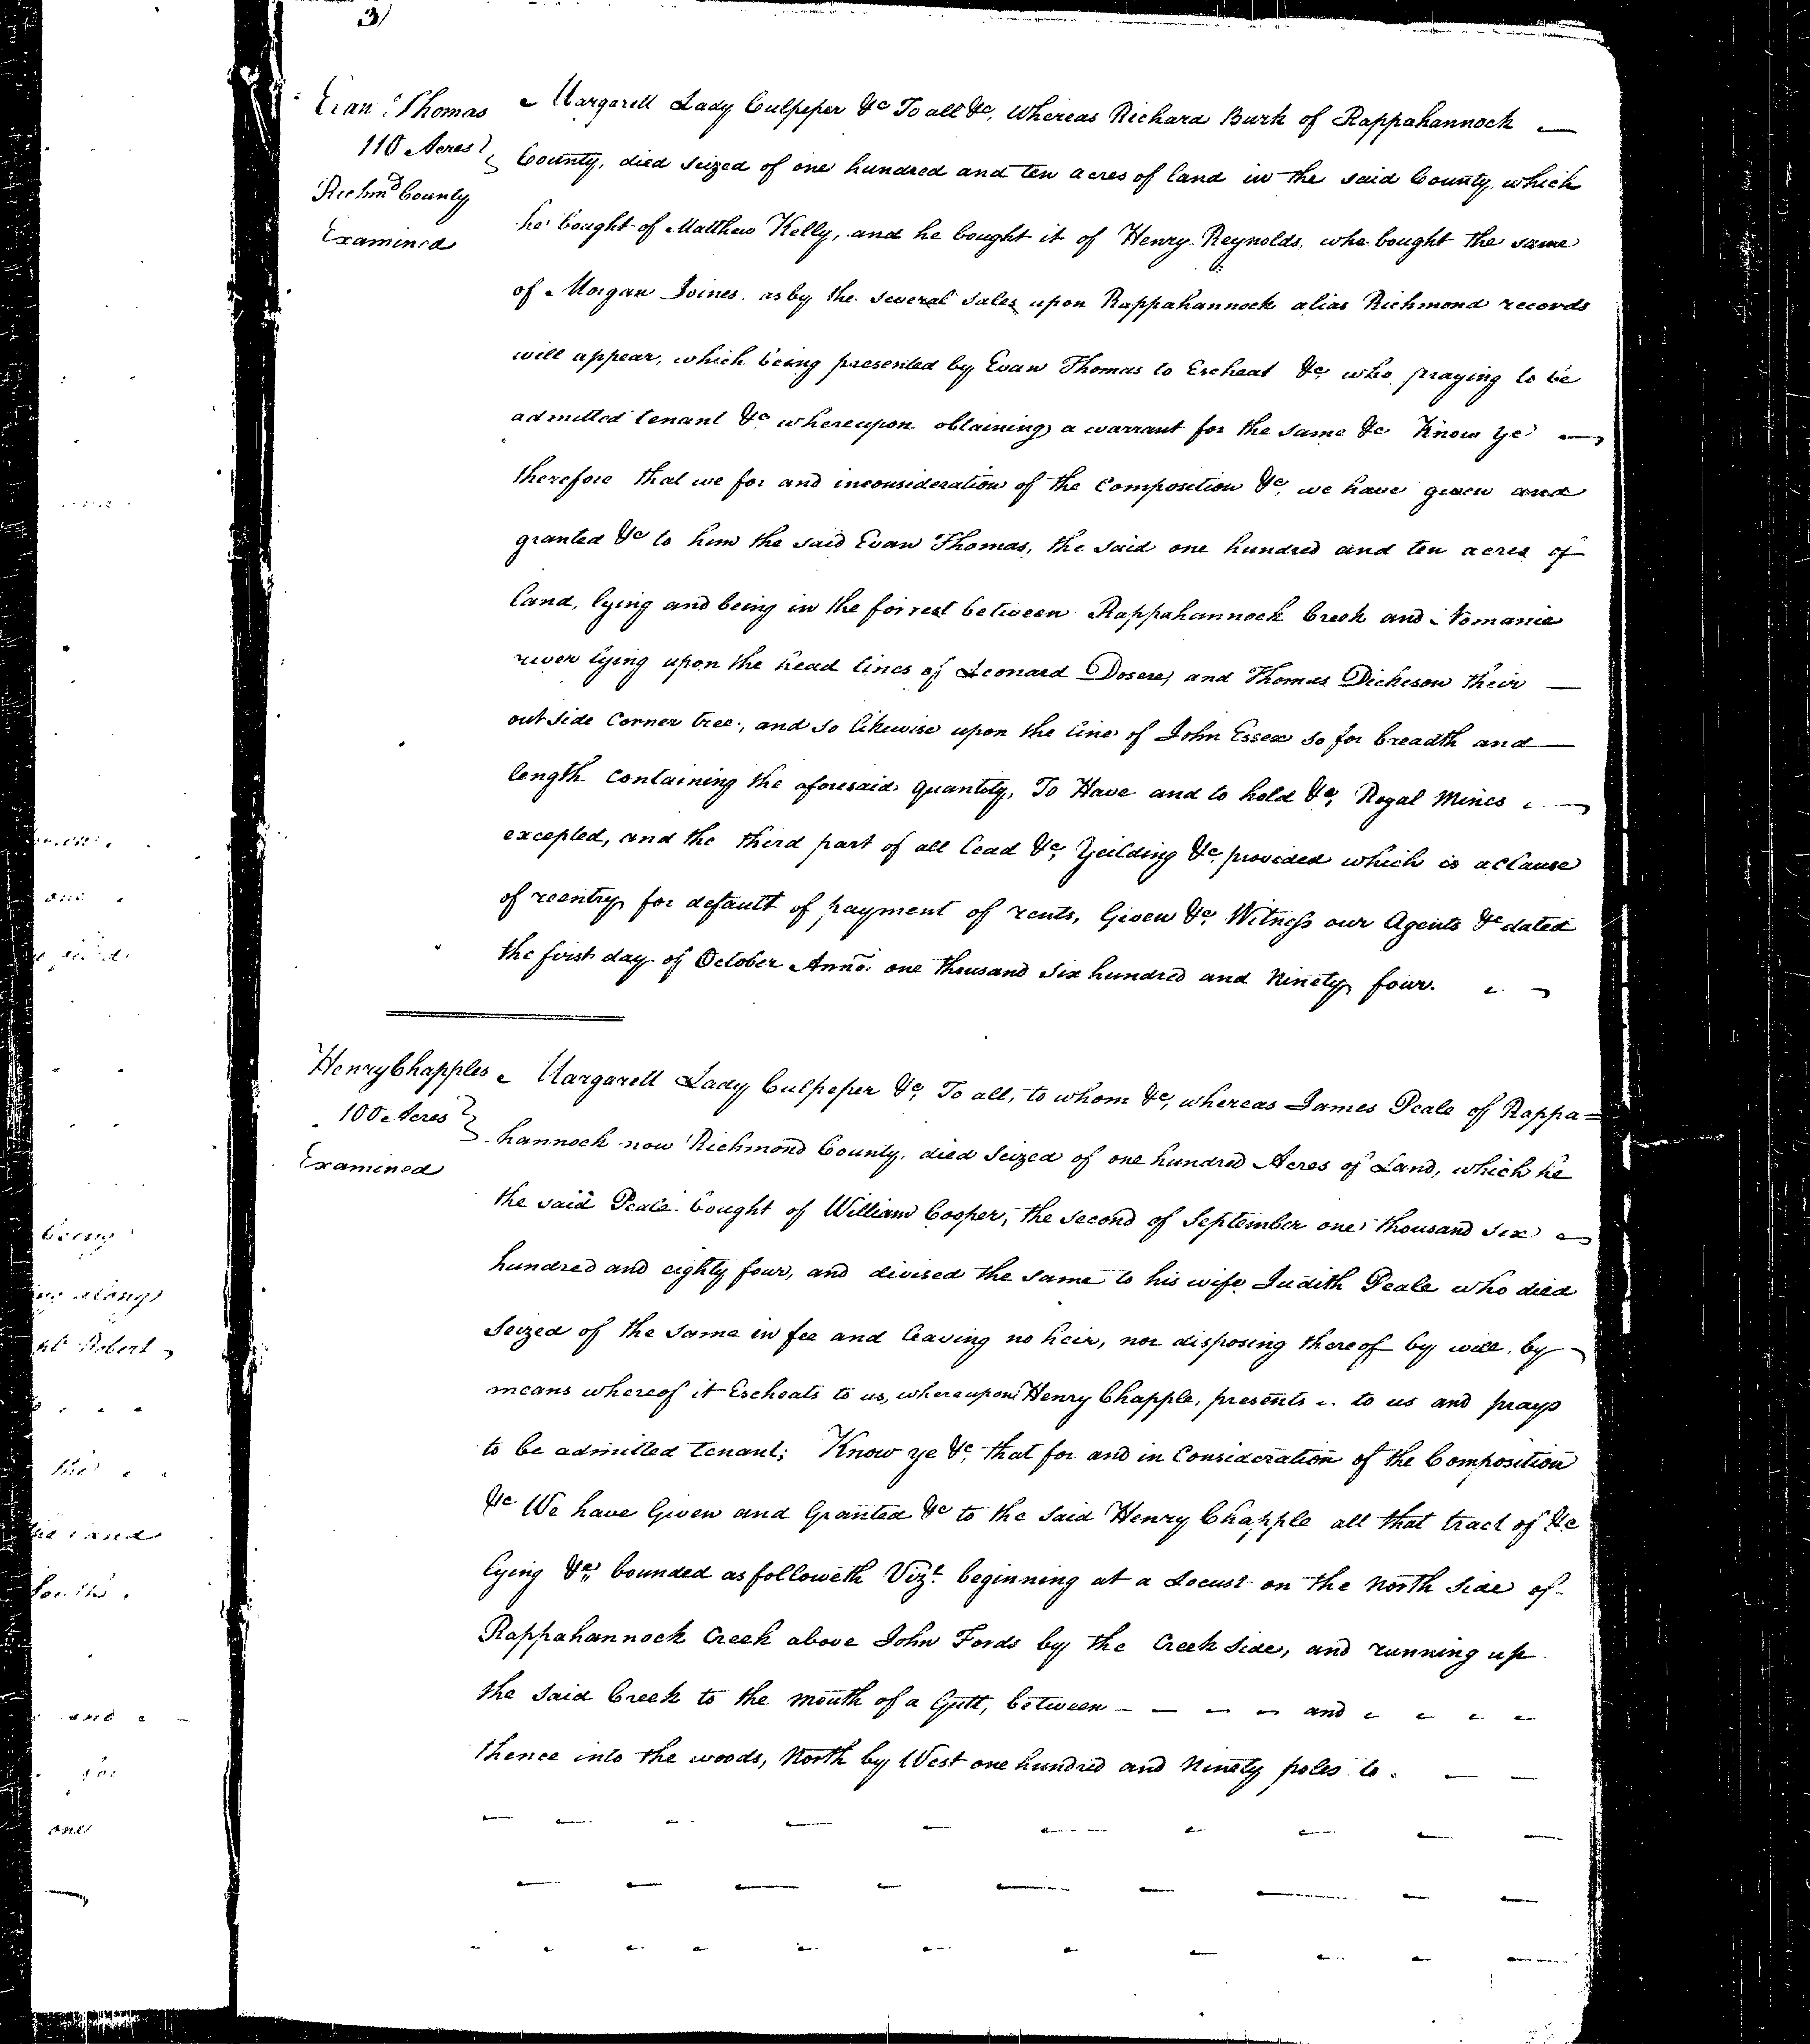 3
Evan Thomas
110 Acres
Richmd County
Examined
Margarett Lady Culpeper &c To all &c, Whereas Richard Burk of Rappahannock
County, died seized of one hundred and ten acres of land in the said County, which
he bought of Matthew Kelly, and he bought it of Henry Reynolds, who bought the same
of Morgan Joines as by the several sales upon Rappahannock alias Richmond records
will appear, which being presented by Evan Thomas to Escheat &c, who praying to be
admitted tenant &c whereupon obtaining a warrant for the same &c Know ye
therefore that we for and inconsideration of the Composition &c, we have given and
granted &c to him the said Evan Thomas, the said one hundred and ten acres of
land, lying and being in the forrest between Rappahannock Creek and Nomanie
river lying upon the head lines of Leonard Dosere, and Thomas Dickeson their
out side Corner tree, and so likewise upon the line of John Essex so for breadth and
length containing the aforesaid quantity, To Have and to hold &c, Rogal Mines
excepted, and the third part of all lead &c, Yeilding &c, provided which is a clause
of reentry for default of payment of rents, Given &c, Witness our Agents &c dated
the first day of October Anno: one thousand six hundred and Ninety four.
Henry Chapples
100 Acres
Examined
Margarett Lady Culpeper &c, To all, to whom &c, whereas James Peale of Rappa=
hannock now Richmond County, died seized of one hundred Acres of Land, which he
the said Peale bought of William Cooper, the second of September one thousand six
hundred and eighty four, and divised the same to his wife Judith Peale who died
Seized of the same in fee and leaving no heir, nor disposing thereof by will, by
means whereof it Escheats to us, whereupon Henry Chapple, presents to us and prays
to be admitted tenant; Know ye &c, that for and in Consideration of the Composition
&c We have Given and Granted &c to the said Henry Chapple all that tract of &c
lying &c, bounded as followeth Vizt. beginning at a Locust on the North side of
Rappahannock Creek above John Fords by the Creek Side, and running up
the said Creek to the mouth of a Gutt, between - - - - and - - - -
thence into the woods, North by West one hundred and Ninety poles to - -